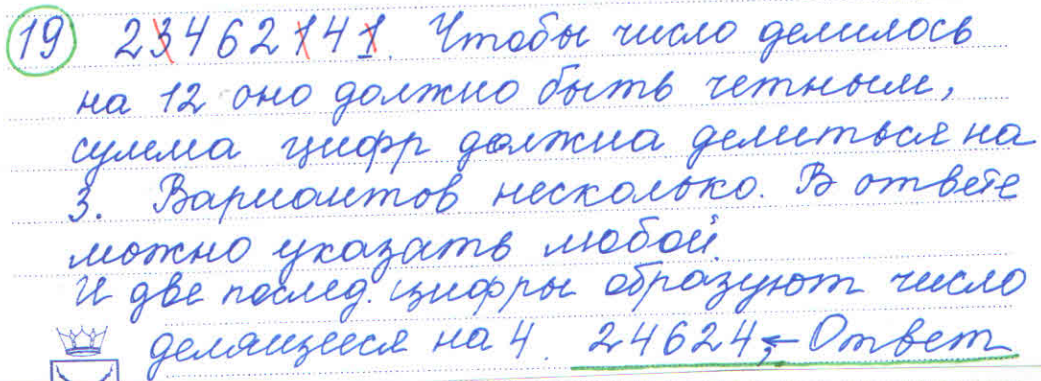 19 23462141. Чтобы число делилось
на 12 оно должно быть четным,
сумма цифр должна делиться на
3. Вариантов несколько. В ответе
можно указать любой.
И две послед. цифры образуют число
делящееся на 4. 24624 ← Ответ